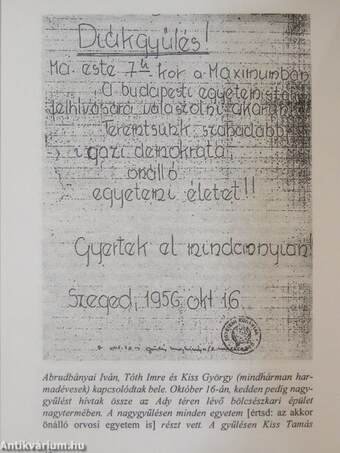 Diákgyűlés!
Ma este 7h kor a Maximumban
a budapesti egyetemisták
felhívására válaszolni akarunk
Teremtsünk szabadabb
igazi demokrata,
önálló
egyetemi életet!!
Gyertek el mindannyian!
Szeged, 1956 okt 16.
Abrudbányai Iván, Tóth Imre és Kiss György (mindhárman har-
madévesek) kapcsolódtak bele. Október 16-án, kedden pedig nagy-
gyűlést hívtak össze az Ady téren lévő bölcsészkari épület
nagytermében. A nagygyűlésen minden egyetem [értsd: az akkor
önálló orvosi egyetem is] részt vett. A gyűlésen Kiss Tamás
Antikvarium.hu